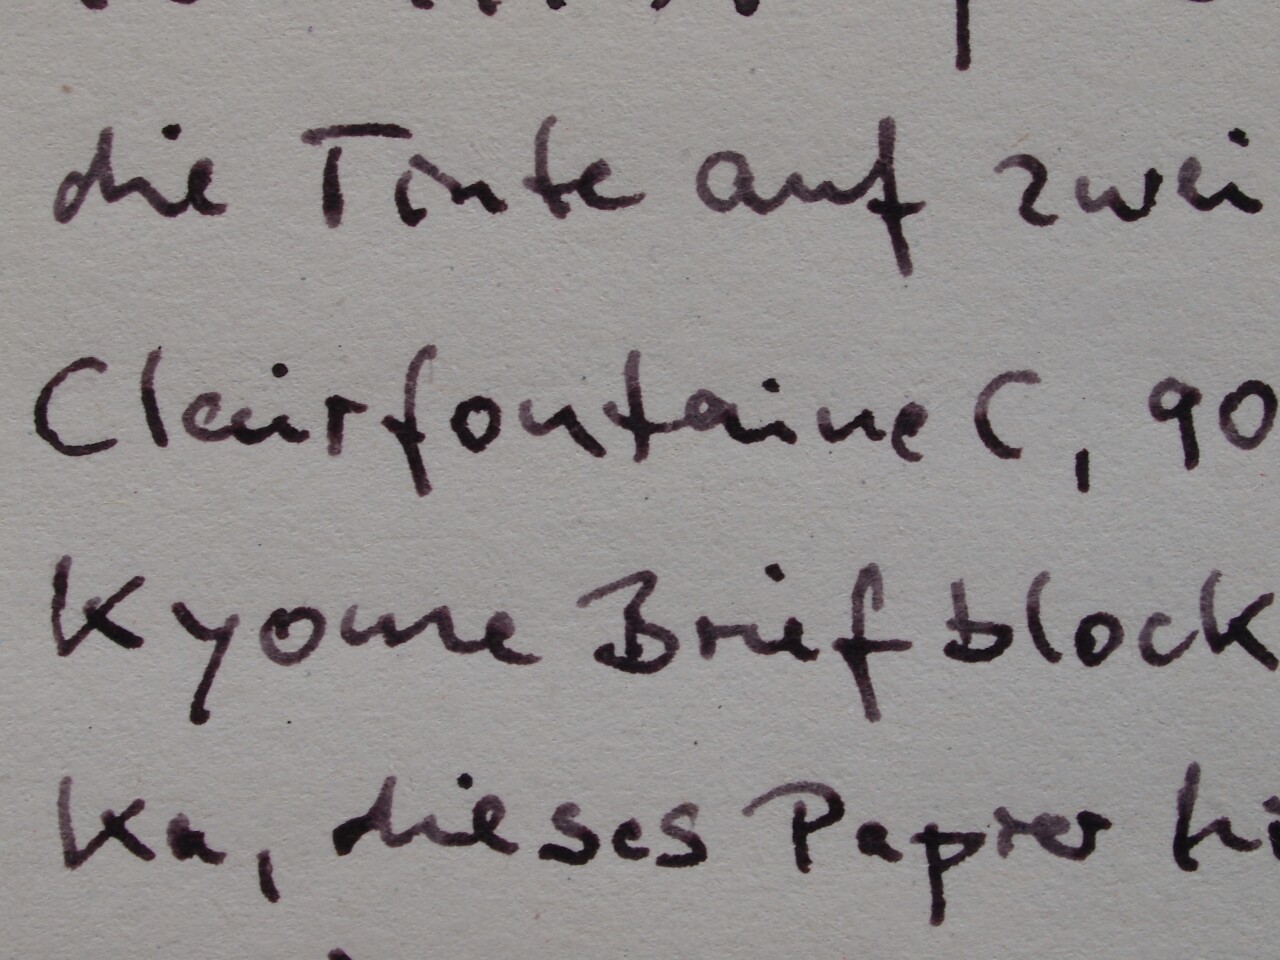 die Tinte auf zwei
Clairfontaine C, 90
Kyome Briefblock
Ka, dieses Papier hi